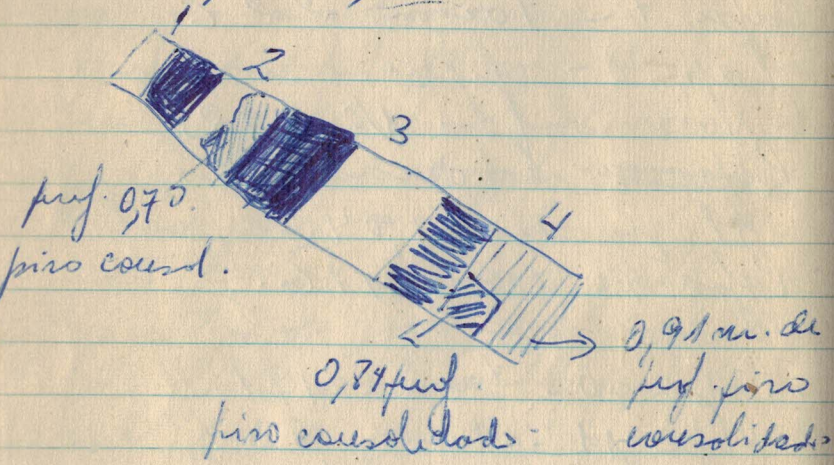 1
2
3
4
prof. 0,70.
piso consol.
0,84 prof.
piso consolidado.
0,91 m. de
prof. piso
consolidado